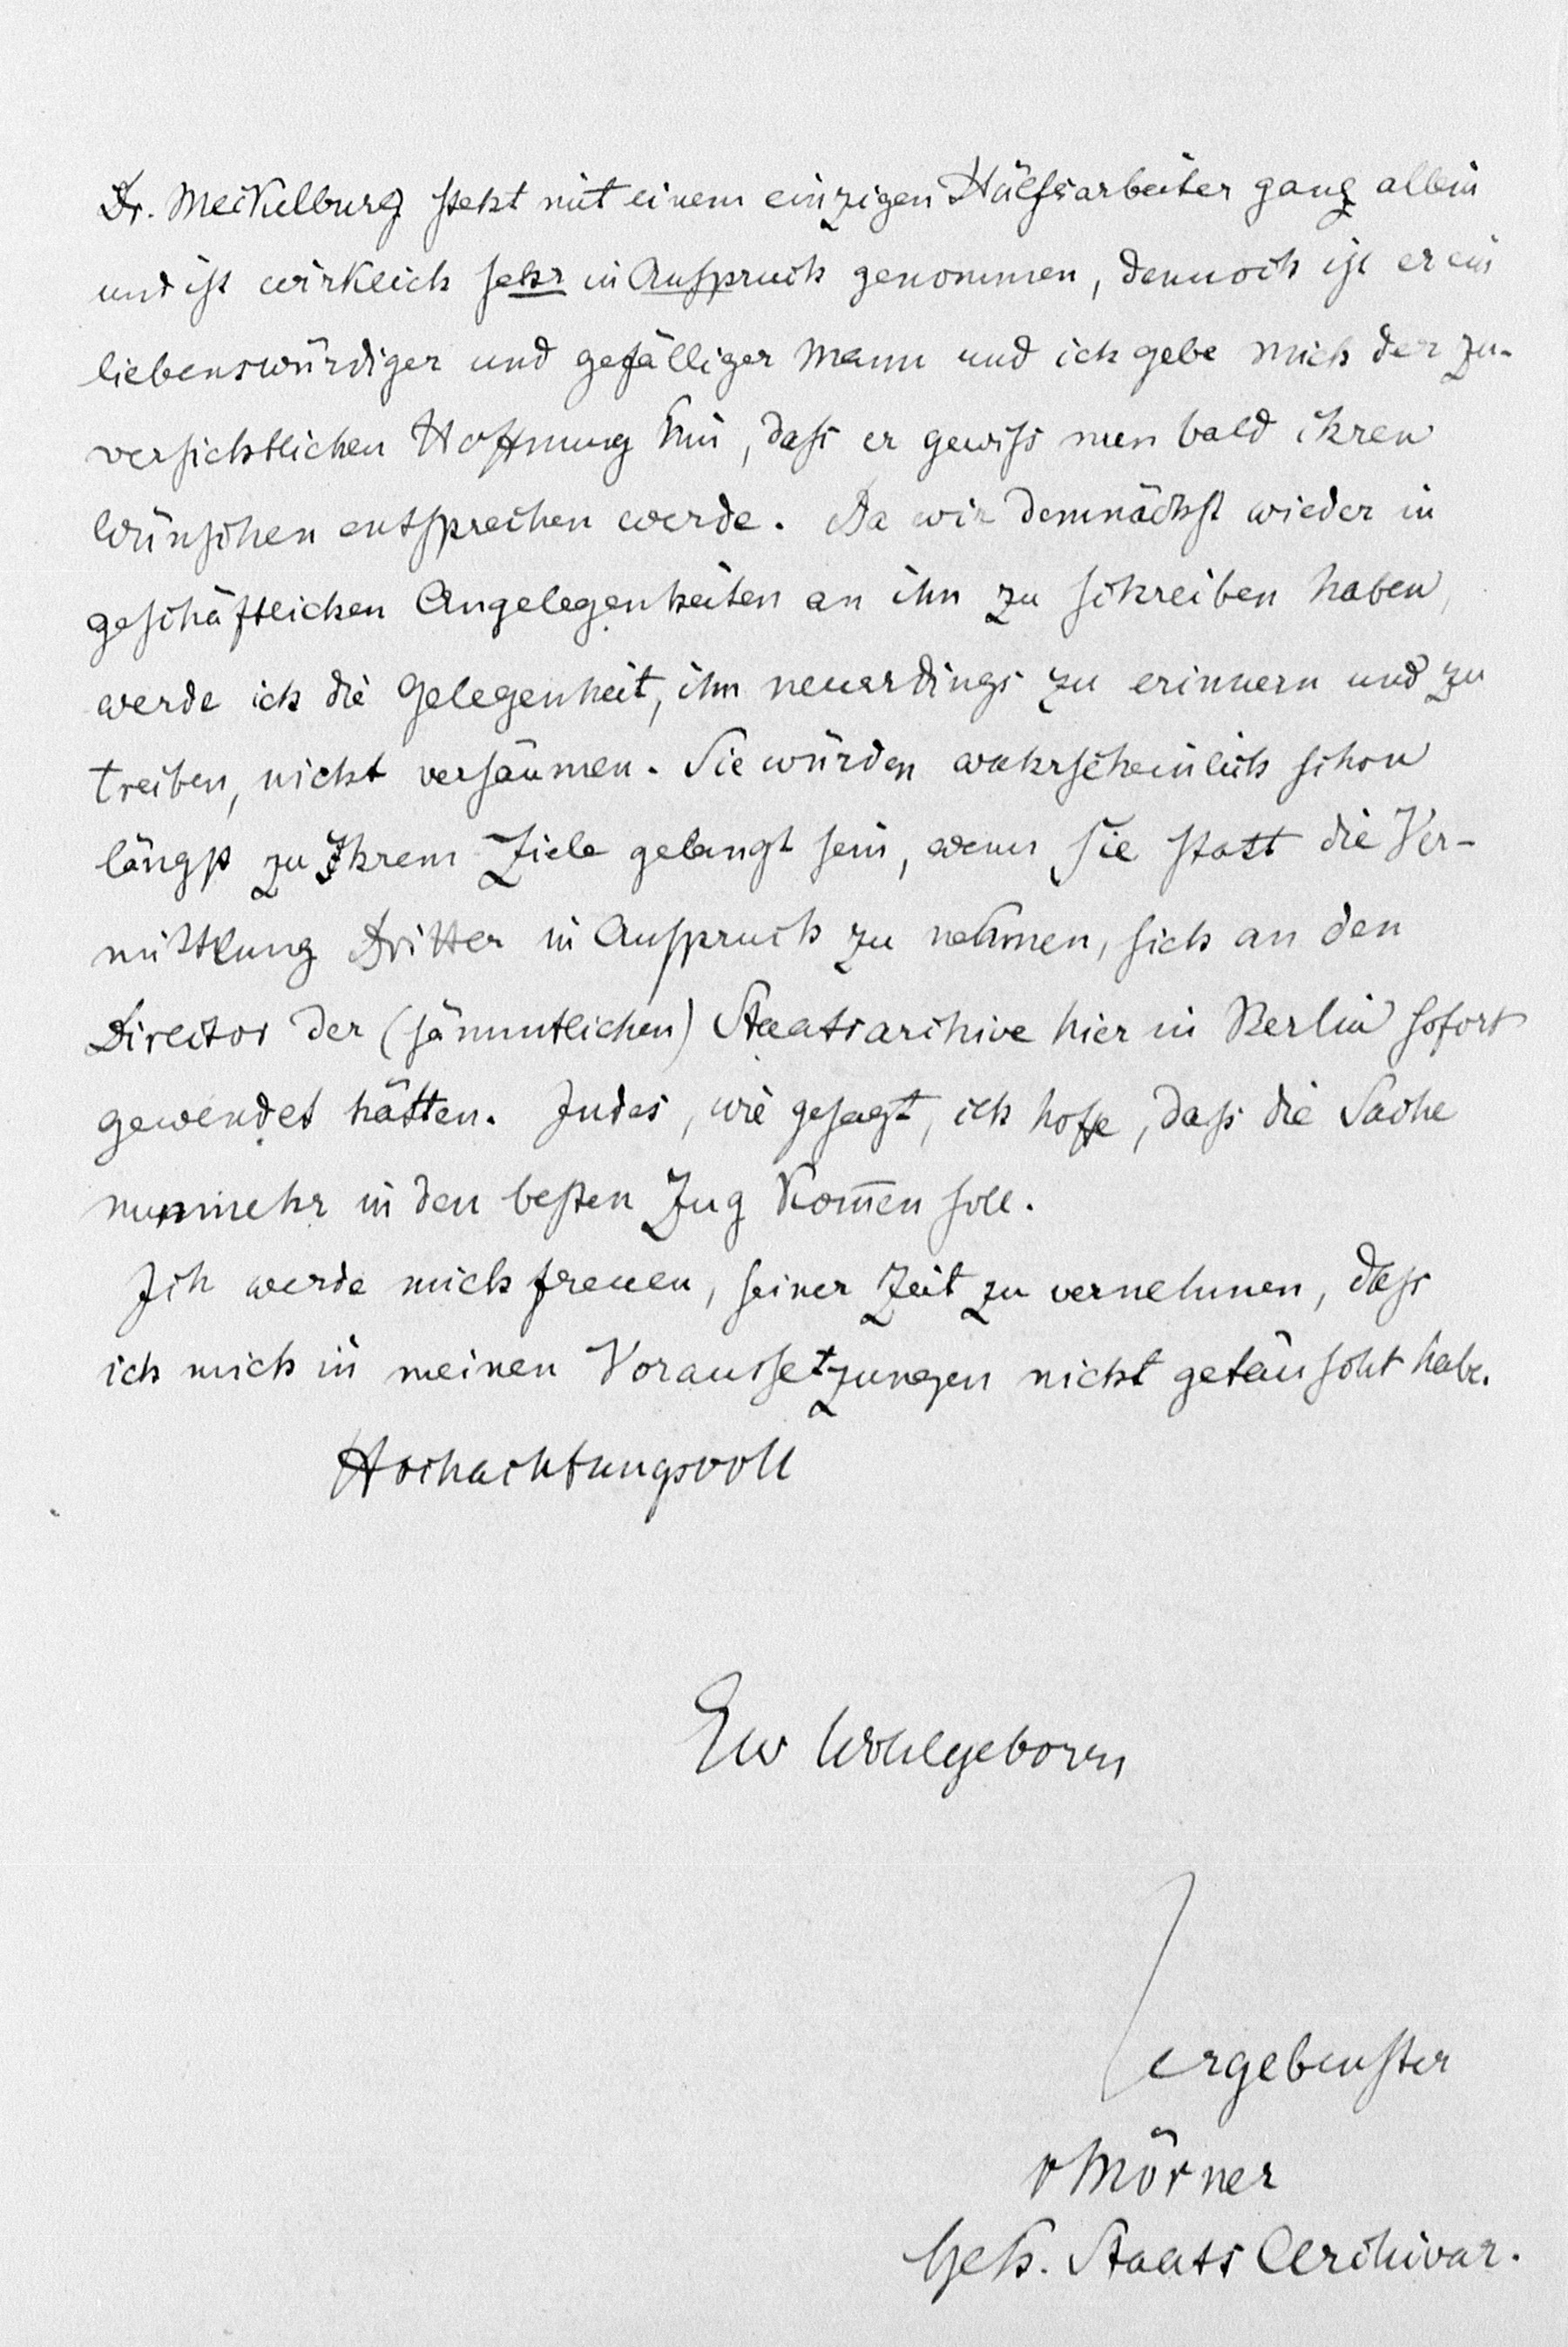 Dr. Meckelburg steht mit einem einzigen Hülfsarbeiter ganz allein
und ist wirklich sehr in Anspruch genommen, dennoch ist er ein
liebenswürdiger und gefälliger Mann und ich gebe mich der zu-
versichtlichen Hoffnung hin, daß er gewiß nun bald ihren
Wünschen entsprechen werde. Da wir demnächst wieder in
geschäftlichen Angelegenheiten an ihn zu schreiben haben,
werde ich die Gelegenheit, ihn neuerdings zu erinnern und zu
treiben, nicht versäumen. Sie würden wahrscheinlich schon
längst zu Ihrem Ziele gelangt sein, wenn Sie statt die Ver-
mittlung Dritter in Anspruch zu nehmen, sich an den
Director der (sämmtlichen) Staatsarchive hier in Berlin sofort
gewendet hätten. Indes, wie gesagt, ich hoffe, daß die Sache
nunmehr in den besten Zug kom̅en soll.
Ich werde mich freuen, seiner Zeit zu vernehmen, daß
ich mich in meinen Voraussetzungen nicht getäuscht habe.
Hochachtungsvoll
Ew Wohlgeborn
ergebenster
v Mörner
Geh. Staats Archivar.